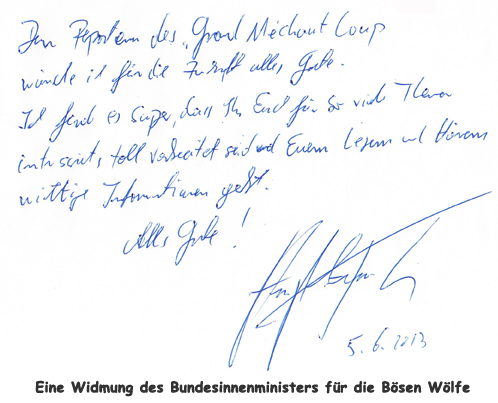 Den Reportern des "Grand Méchant Loup
wünsche ich für die Zukunft alles Gute.
Ich fand es super, dass Ihr Euch für so viele Themen
interessiert, toll vorbereitet seid und Euern Lesern und Hörern
wichtige Informationen gebt.
Alles Gute!
5.6.2013
Eine Widmung des Bundesinnenministers für die Bösen Wölfe